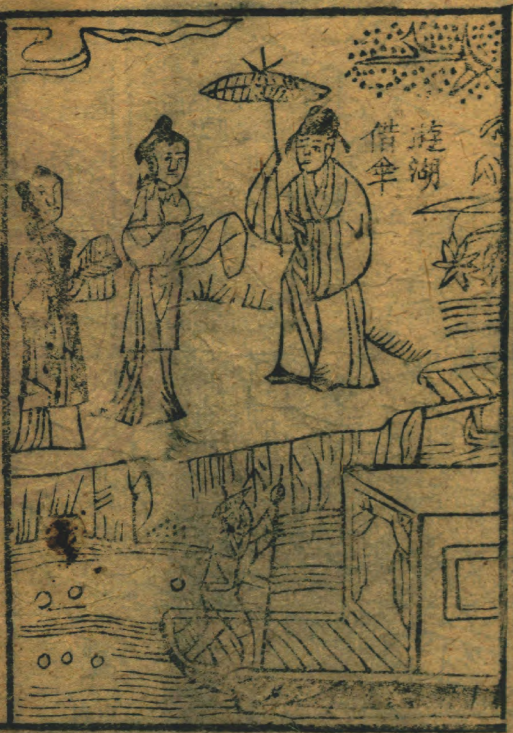 遊湖
借傘